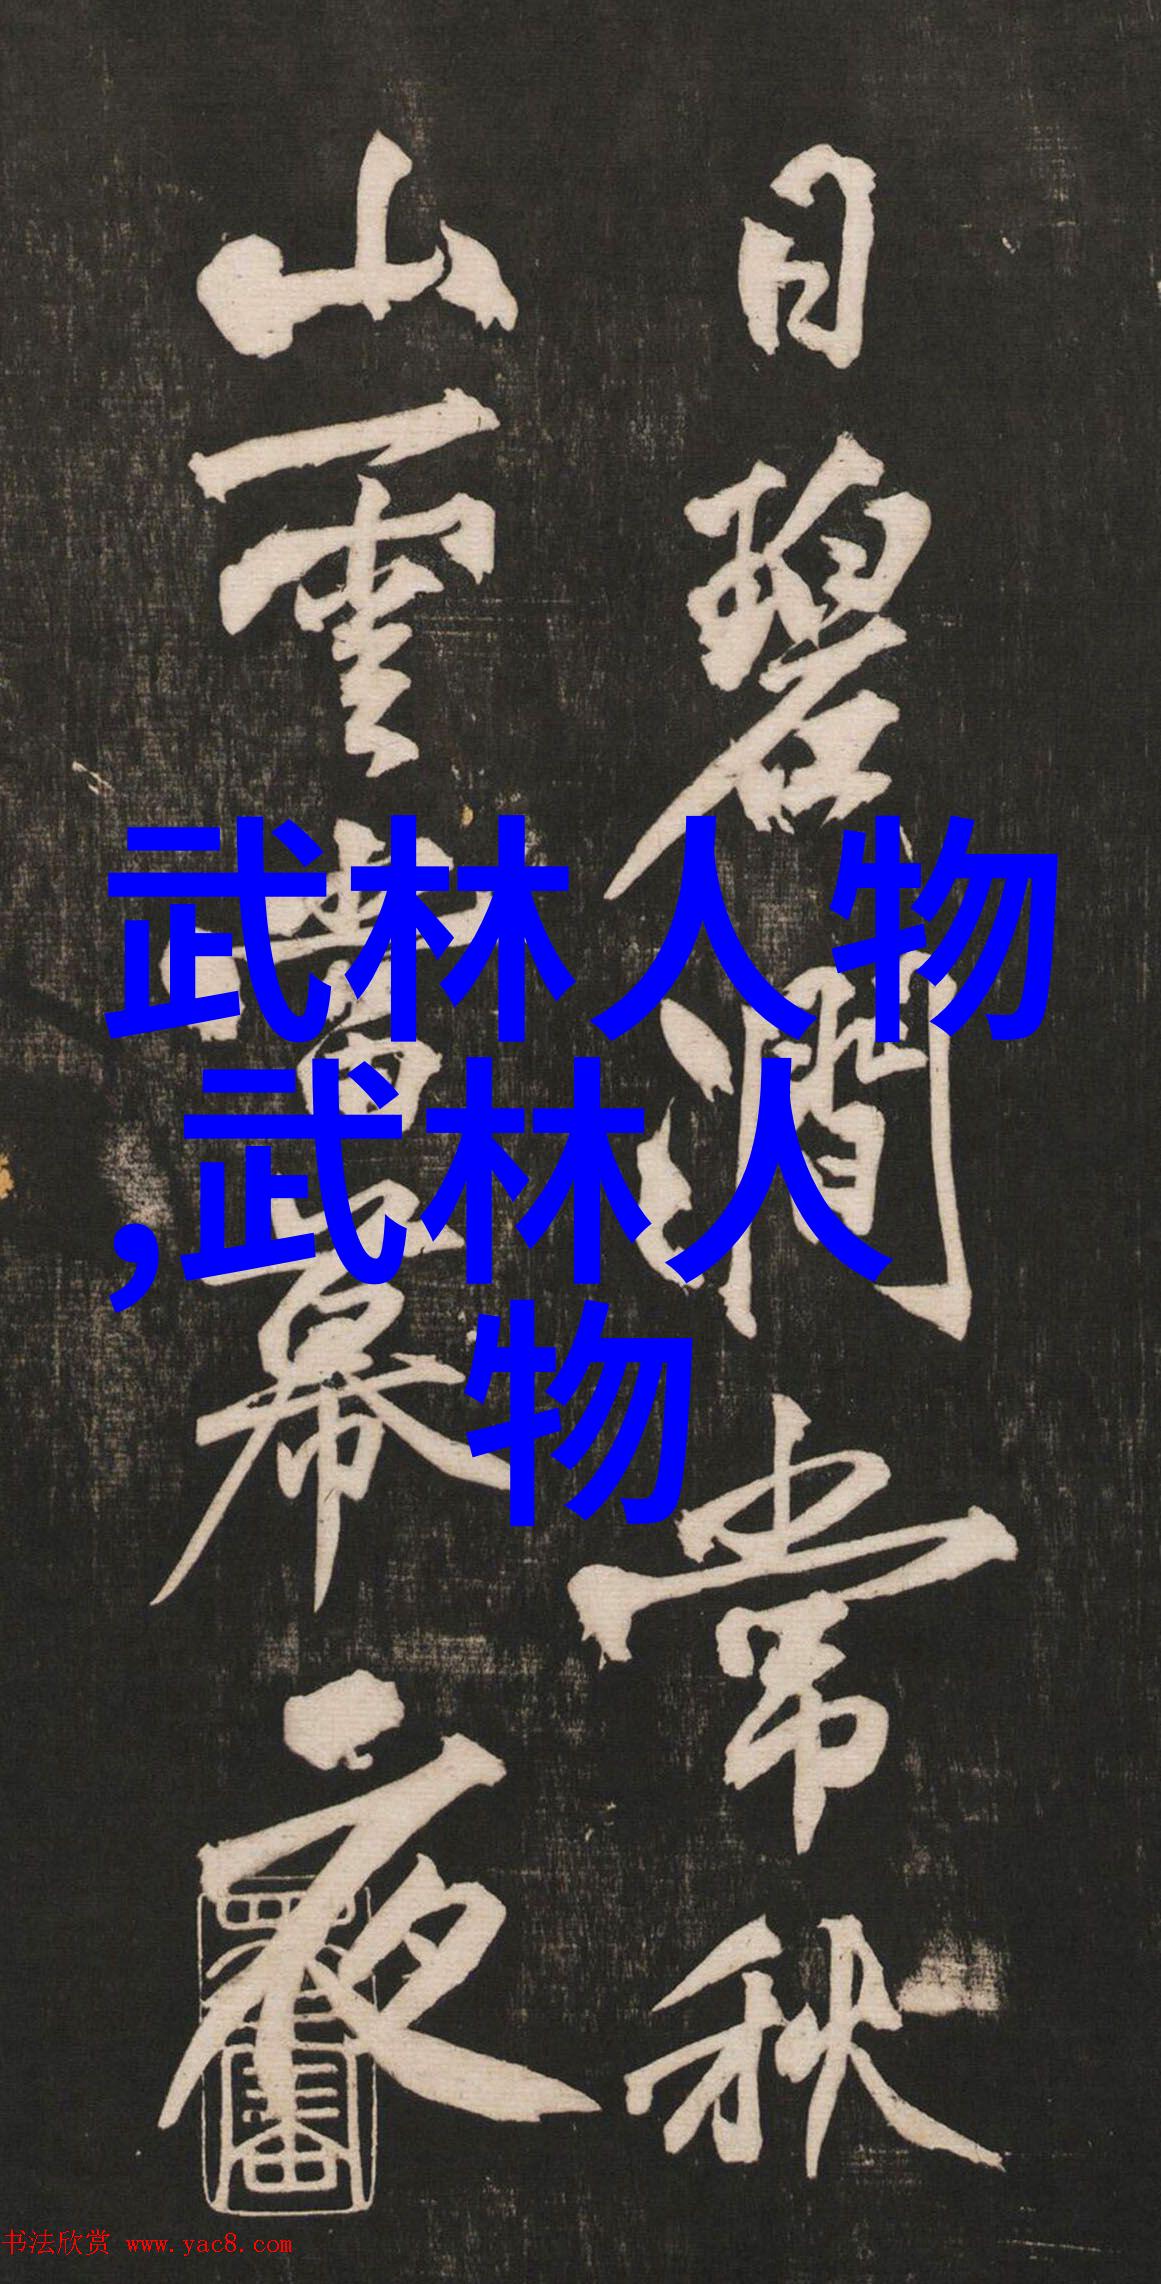 日碧澗常秋
山雲當幕夜
武林人物
,武林人
物
书法欣赏 www.yac8.com